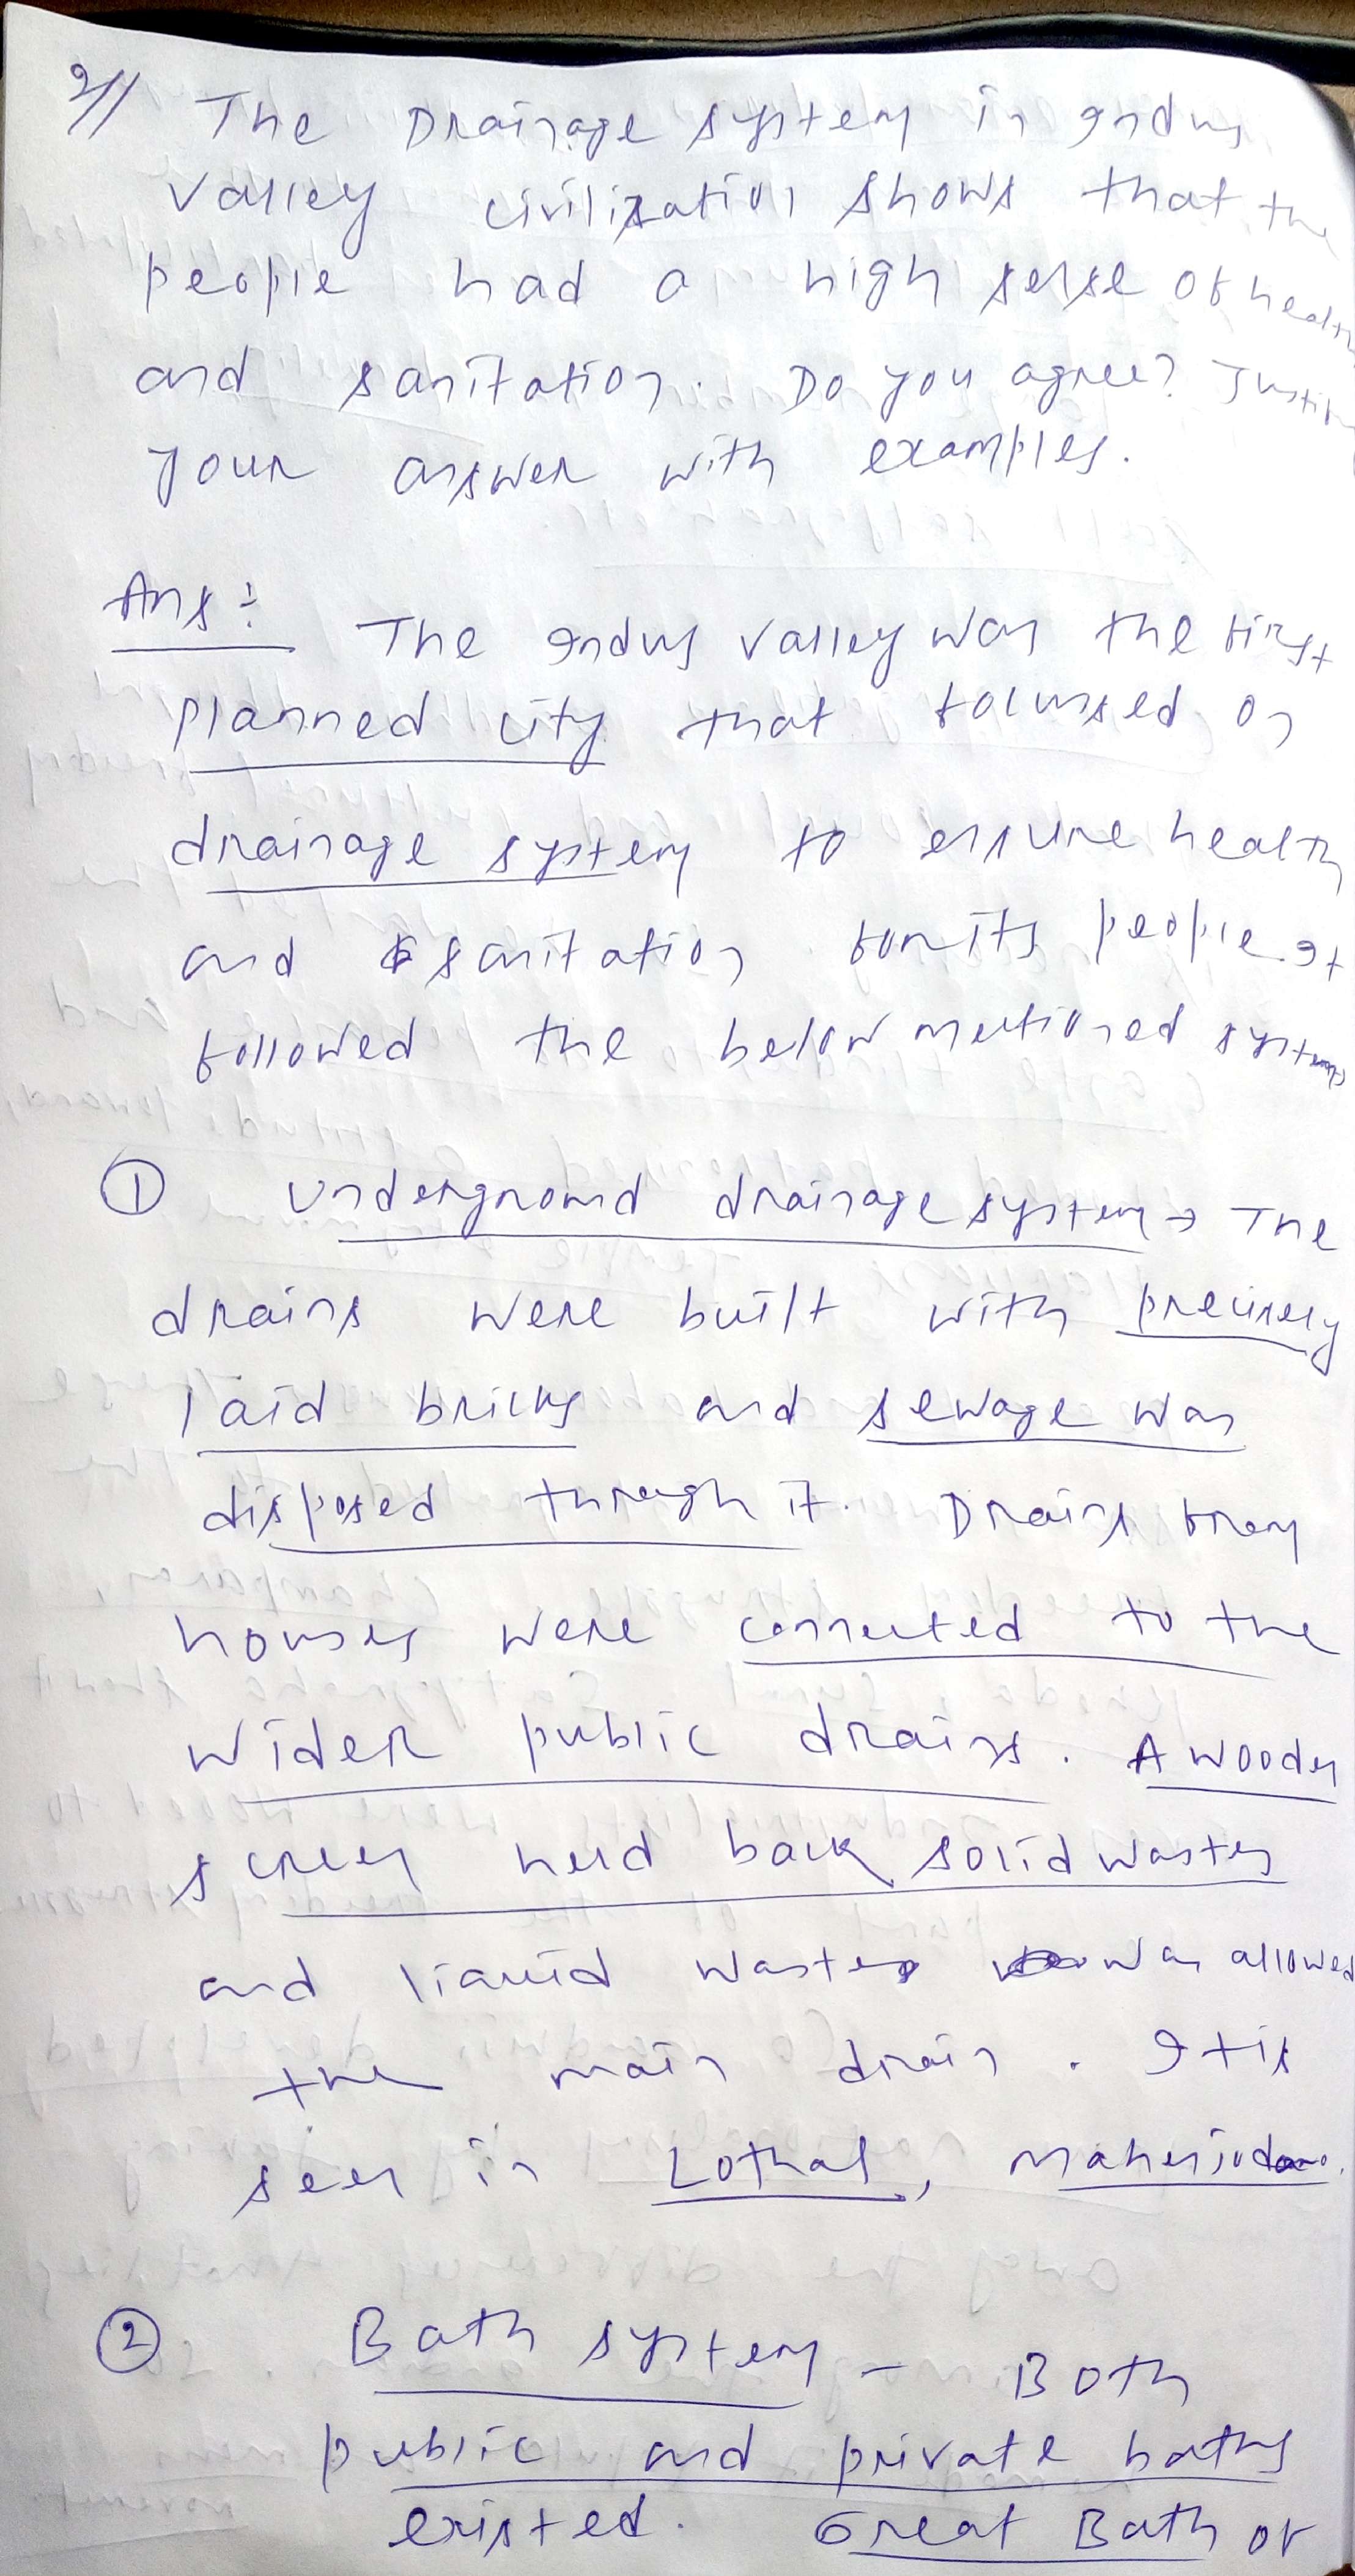 2// The Drainage system in Indus
valley civilization shows that the
people had a high sense of health
and sanitation. Do you agree? Justify
your answer with examples.
Ans:
The Indus valley was the first
planned city that focussed on
drainage system to ensure health
and sanitation for its people. It
followed the below mentioned systems
① Underground drainage system → The
drains were built with precisely
laid bricks and sewage was
disposed through it. Drains from
houses were connected to the
wider public drains. A wooden
screen held back solid wastes
and liquid waste was allowed
the main drain. It is
seen in Lothal,
② Bath system - Both
public and private baths
existed. Great Bath of